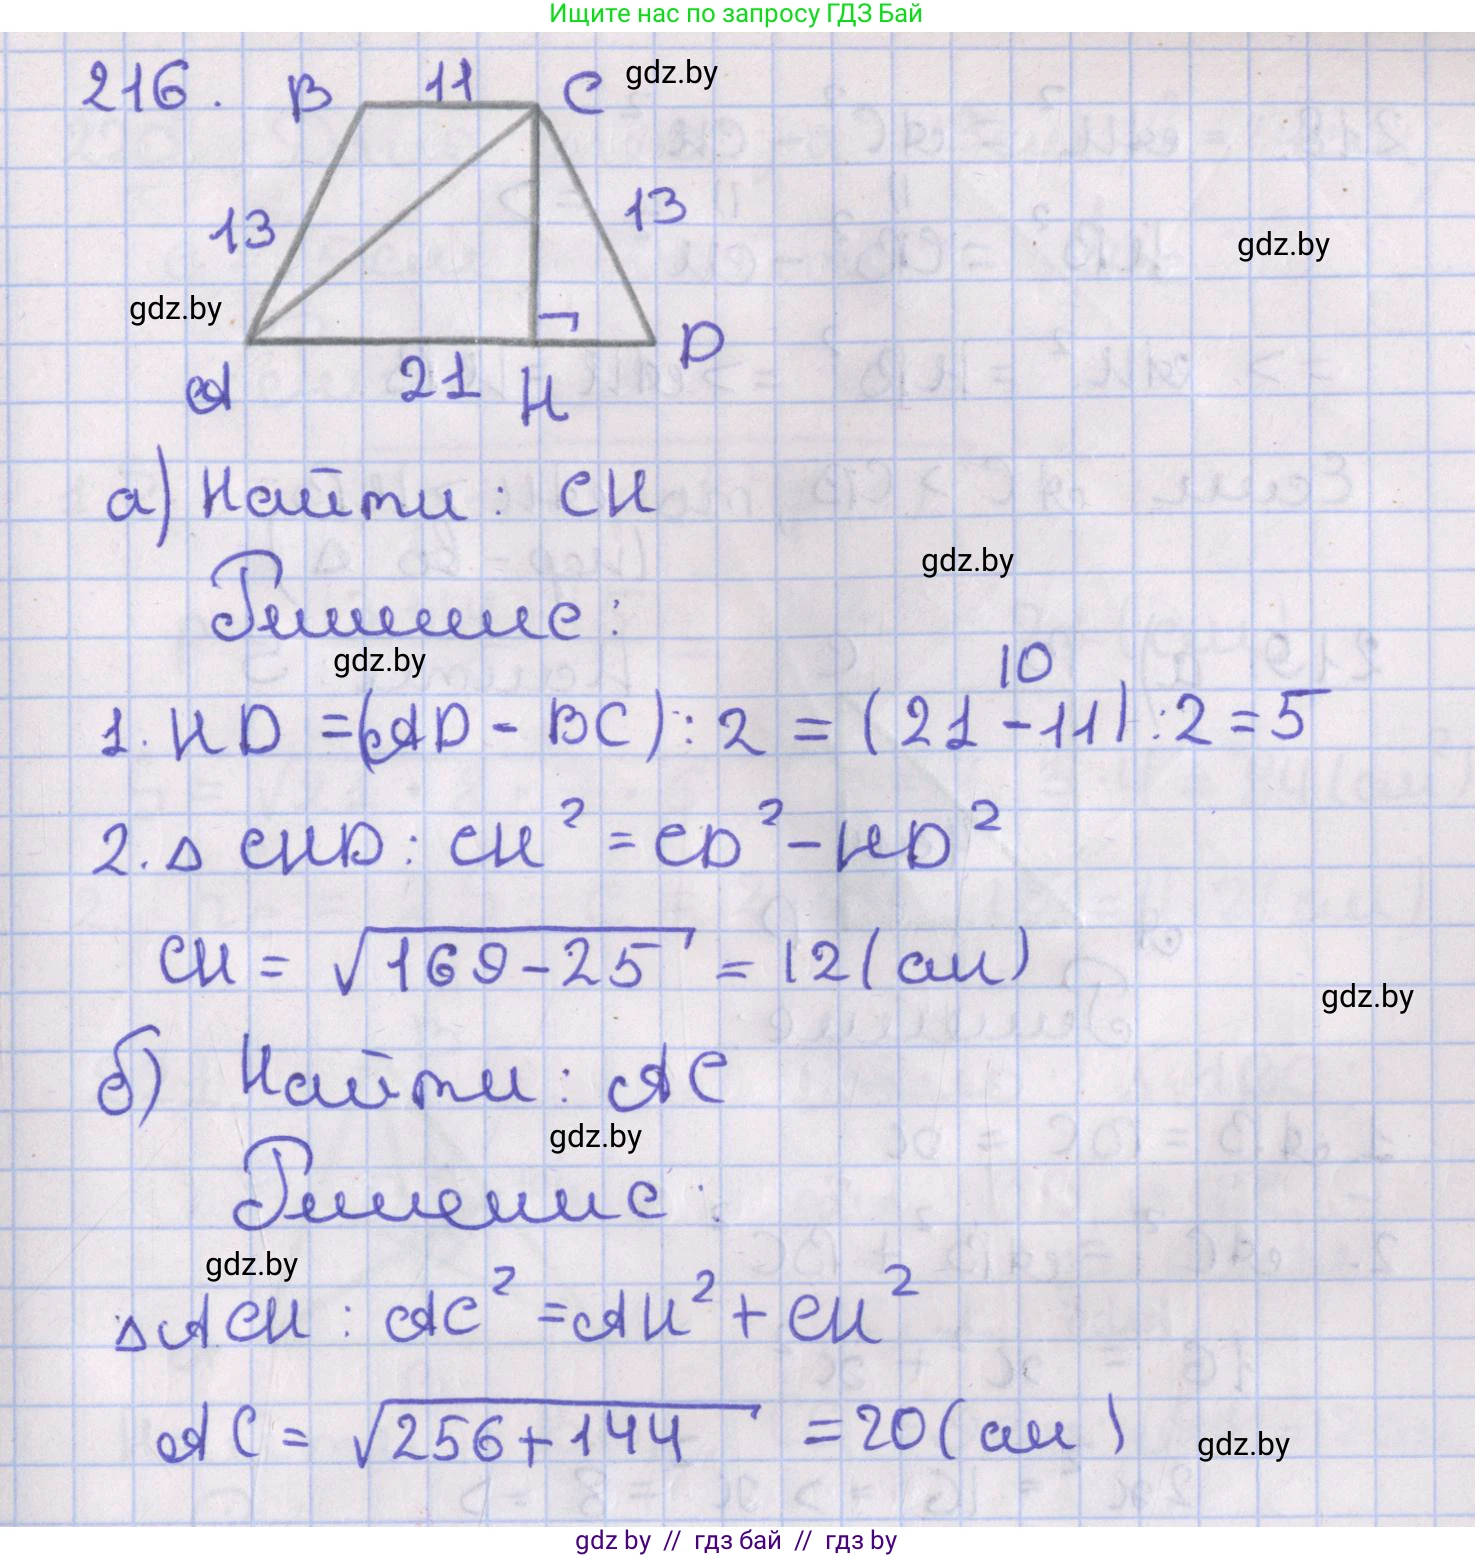 Ищите нас по запросу ГДЗ Бай
216. B 11 C gdz.by
13 13
gdz.by
gdz.by
A 21 H D
а) Найти: CH
gdz.by
Решение:
gdz.by
10
1. HD = (AD - BC) : 2 = (21 - 11) : 2 = 5
2. △ CHD : CH² = CD² - HD²
CH = √169 - 25 = 12 (см)
gdz.by
б) Найти: AC
gdz.by
Решение:
gdz.by
△ ACH : AC² = AH² + CH²
AC = √256 + 144 = 20 (см)
gdz.by
gdz by // гдз бай // гдз by